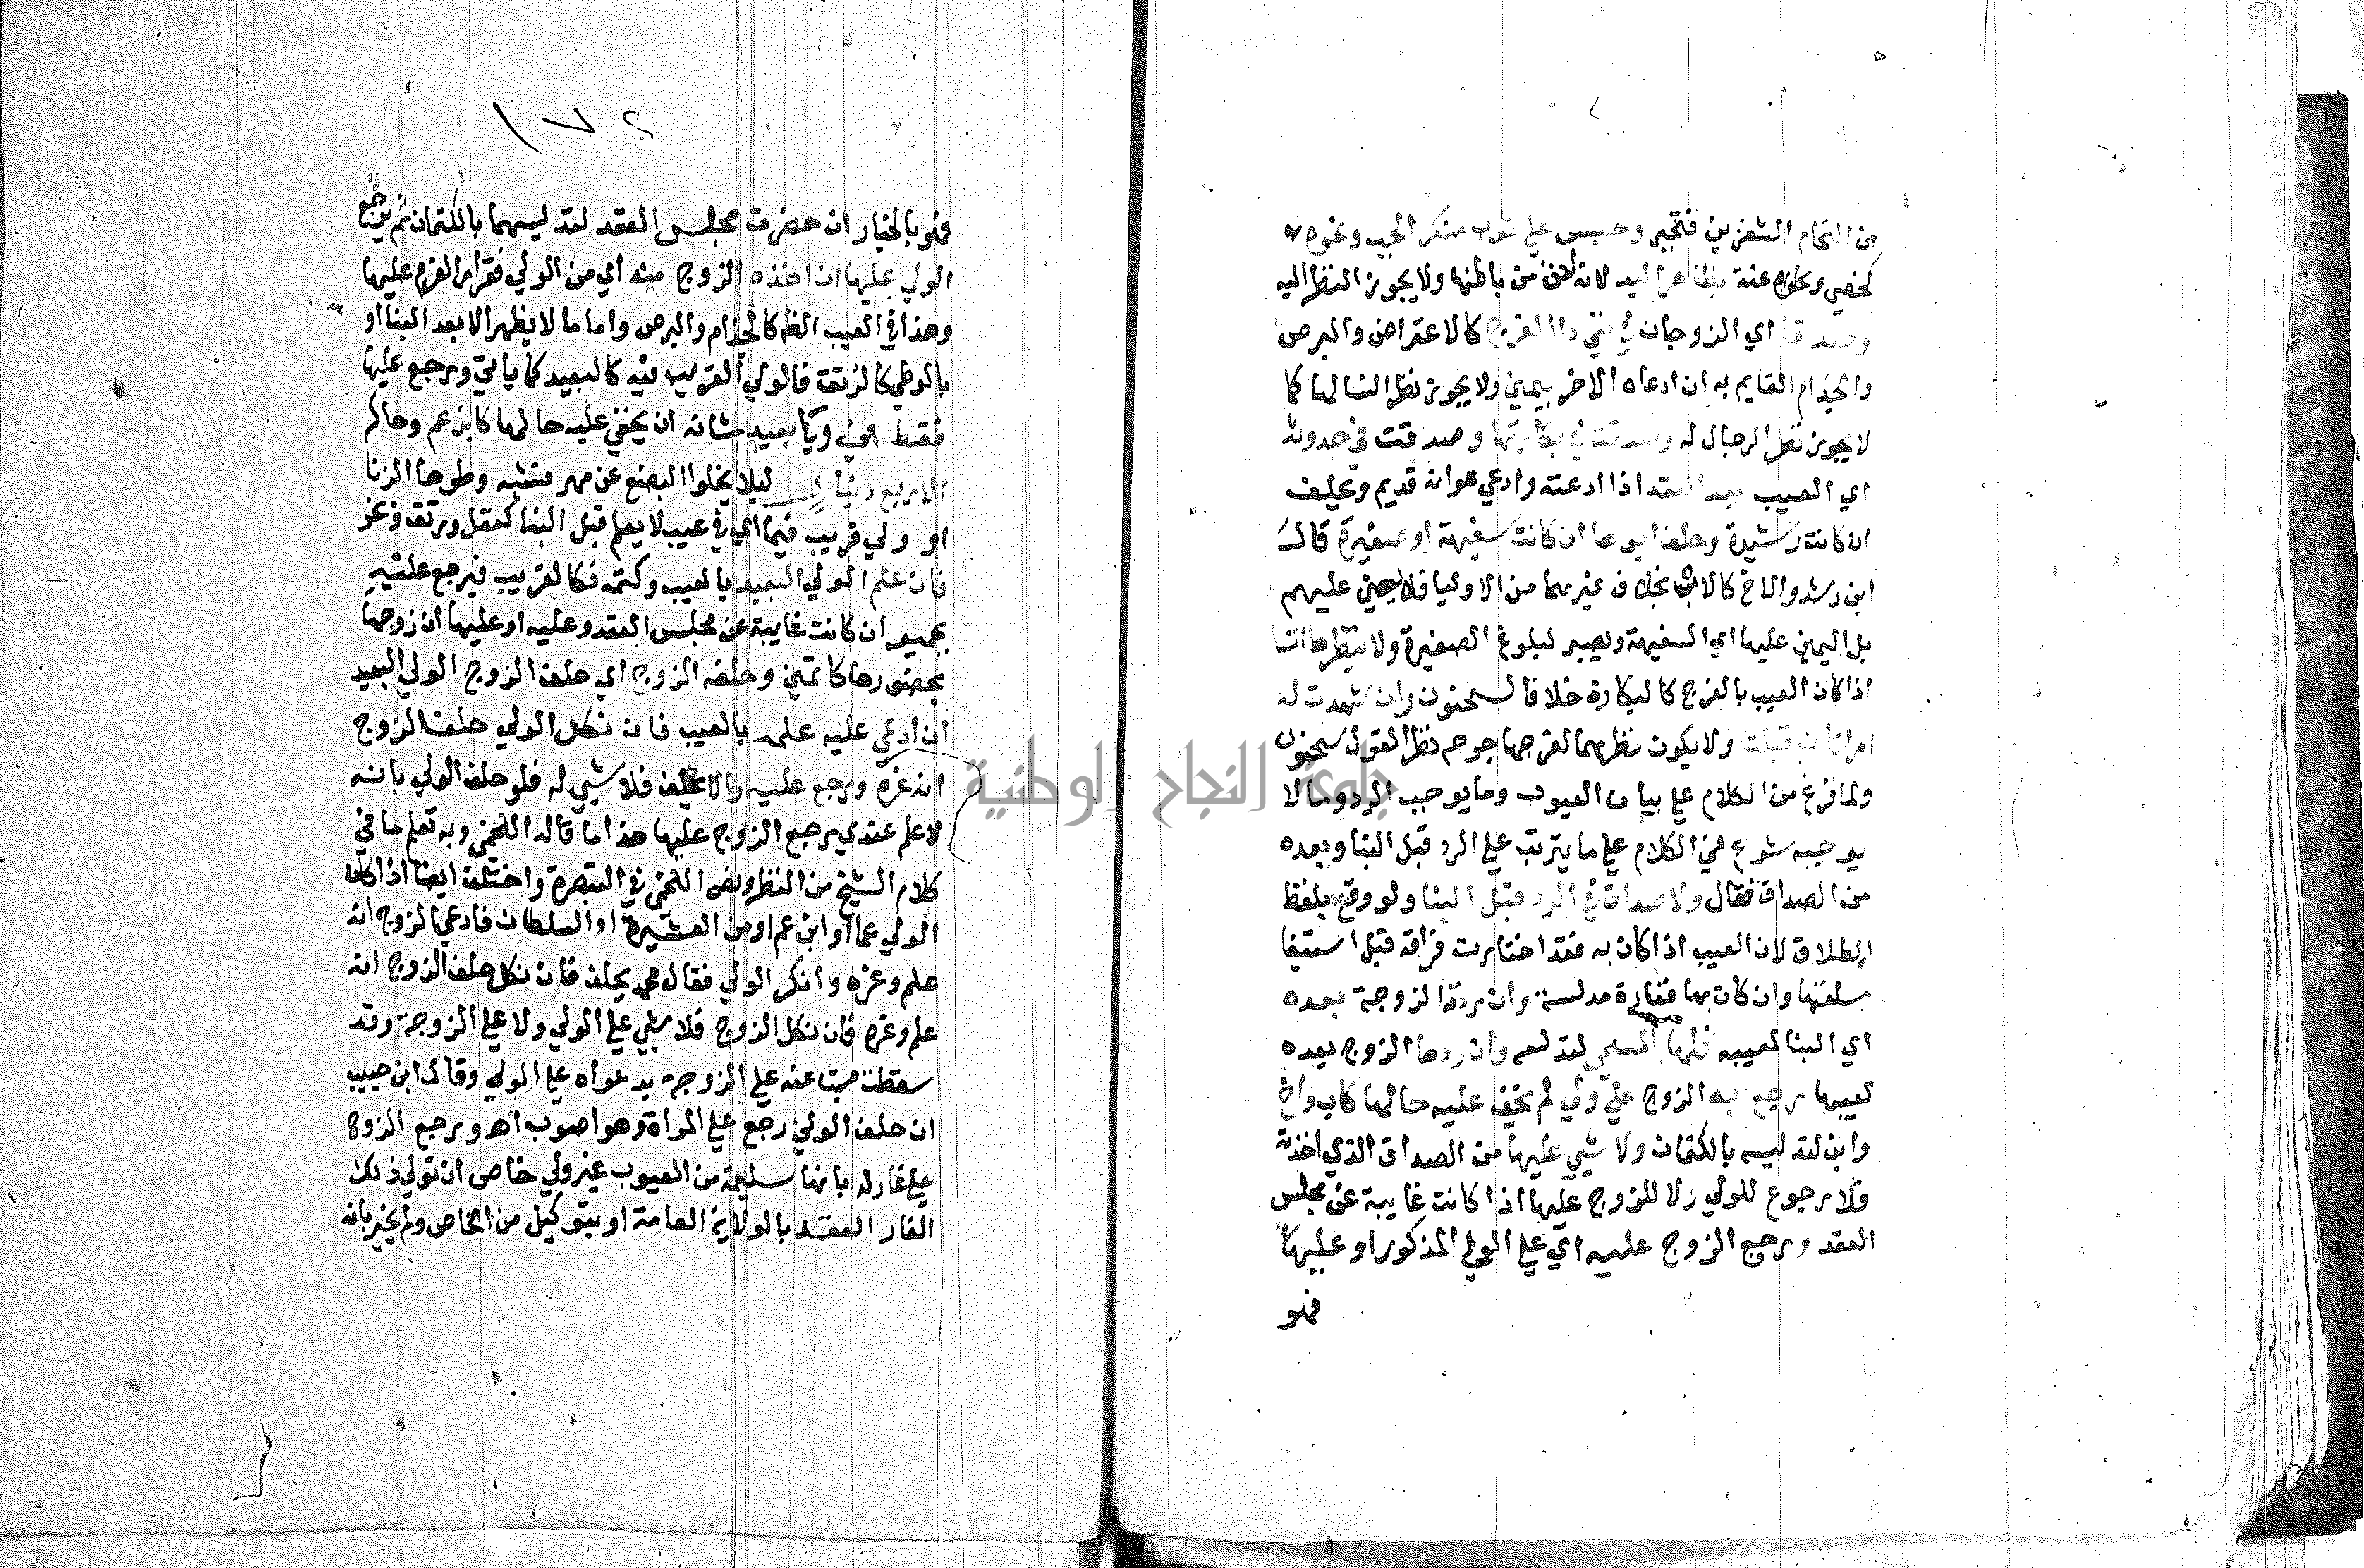 من التحام الشفرين فتجبر وحبس على ثوب منكر الجب ونحوه
كخصي ونحوه عنة بظاهر اليد لانه اخف من باطنها ولا يجوز النظر اليه
وصدقا اي الزوجان في نفي داالفرج كالاعتراض والبرص
والجذام القايم به ان ادعاه الاخر بيمين ولا يجوز نظر النسا لها كما
لا يجوز نظر الرجال له وصدقت في بكارتها وصدقت في حدوثه
اي العيب بعد العقد اذا ادعته وادعي هو انه قديم وتحلف
ان كانت رشيدة وحلف ابوها ان كانت سفيهة او صغيرة قال
ابن رشد والاخ كالاب بخلاف غيرهما من الاوليا فلا يمين عليهم
بل اليمين عليها اي السفيهة ويصبر لبلوغ الصغيرة ولا ينظرها النسا
اذا كان العيب بالفرج كالبكارة خلافا لسحنون وان شهدت له
امراتان قبلت ولا يكون نظرهما لفرجها جرحة نظر القول سحنون
ولما فرغ من الكلام على بيان العيوب وما يوجب الرد وما لا
يوجبه شرع في الكلام على ما يترتب على الرد قبل البنا وبعده
من الصداق فقال ولا صداق في الرد قبل البنا ولو وقع بلفظ
الطلاق لان العيب اذا كان به فقد اختارت فراقه قبل استيفا
سلعتها وان كان بها فغارة مدلسة وان ردته الزوجة بعده
اي البنا لعيبه فلها المسمي لتدليسه وان ردها الزوج بعده
لعيبها رجع به الزوج على ولي لم يخف عليه حالها كاب واخ
وابن لتدليسه بالكتمان ولا شي عليها من الصداق الذي اخذته
ولا رجوع للولي ولا للزوج عليها اذا كانت غايبة عن مجلس
العقد ورجع الزوج عليه اي على الولي المذكور او عليها
فهو
١٧٢
فهو بالخيار ان حضرت مجلس العقد لتدليسهما بالكتمان ثم يرجع
الولي عليها ان اخذه الزوج منه اي من الولي فقرار الغرم عليها
وهذا في العيب الظاهر كالجذام والبرص واما ما لا يظهر الا بعد البنا او
بالوطي كالرتق فالولي القريب فيه كالبعيد كما ياتي ورجع عليها
فقط في ولي بعيد شانه ان يخفي عليه حالها كابن عم وحاكم
الا ربع دينار ليلا يخلوا البضع عن مهر فتشبه وطوها الزنا
او ولي قريب فيما اي في عيب لا يعلم قبل البنا كعفل ورتق ونحو
فان علم الولي البعيد بالعيب وكتمه فكالقريب فيرجع عليه
بجميعه ان كانت غايبة عن مجلس العقد وعليه او عليها ان زوجها
بحضورها كاتمين وحلفه الزوج اي حلف الزوج الولي البعيد
ان ادعي عليه علمه بالعيب فان نكل الولي حلف الزوج
انه غره ورجع عليه والا يحلف فلا شي له فلو حلف الولي بانه
لا علم عندي يرجع الزوج عليها هذا ما قاله اللخمي وبه تعلم ما في
كلام الشيخ من النظر ونص اللخمي في التبصرة واختلف ايضا اذا كان
الولي عما او ابن عم او من العشيرة او السلطان فادعي الزوج انه
علم وغره وانكر الولي فقال محمد يحلف فان نكل حلف الزوج انه
علم وغره فان نكل الزوج فلا شي على الولي ولا على الزوجة وقد
سقطت تباعته على الزوجة بدعواه على الولي وقال ابن حبيب
ان حلف الولي رجع على المراة وهو اصوب اهـ ورجع الزوج
على غار له بانها سليمة من العيوب غير ولي خاص ان تولي ذلك
الغار العقد بالولاية العامة او بتوكيل من الخاص ولم يخبر بانه
جامعة النجاح الوطنية